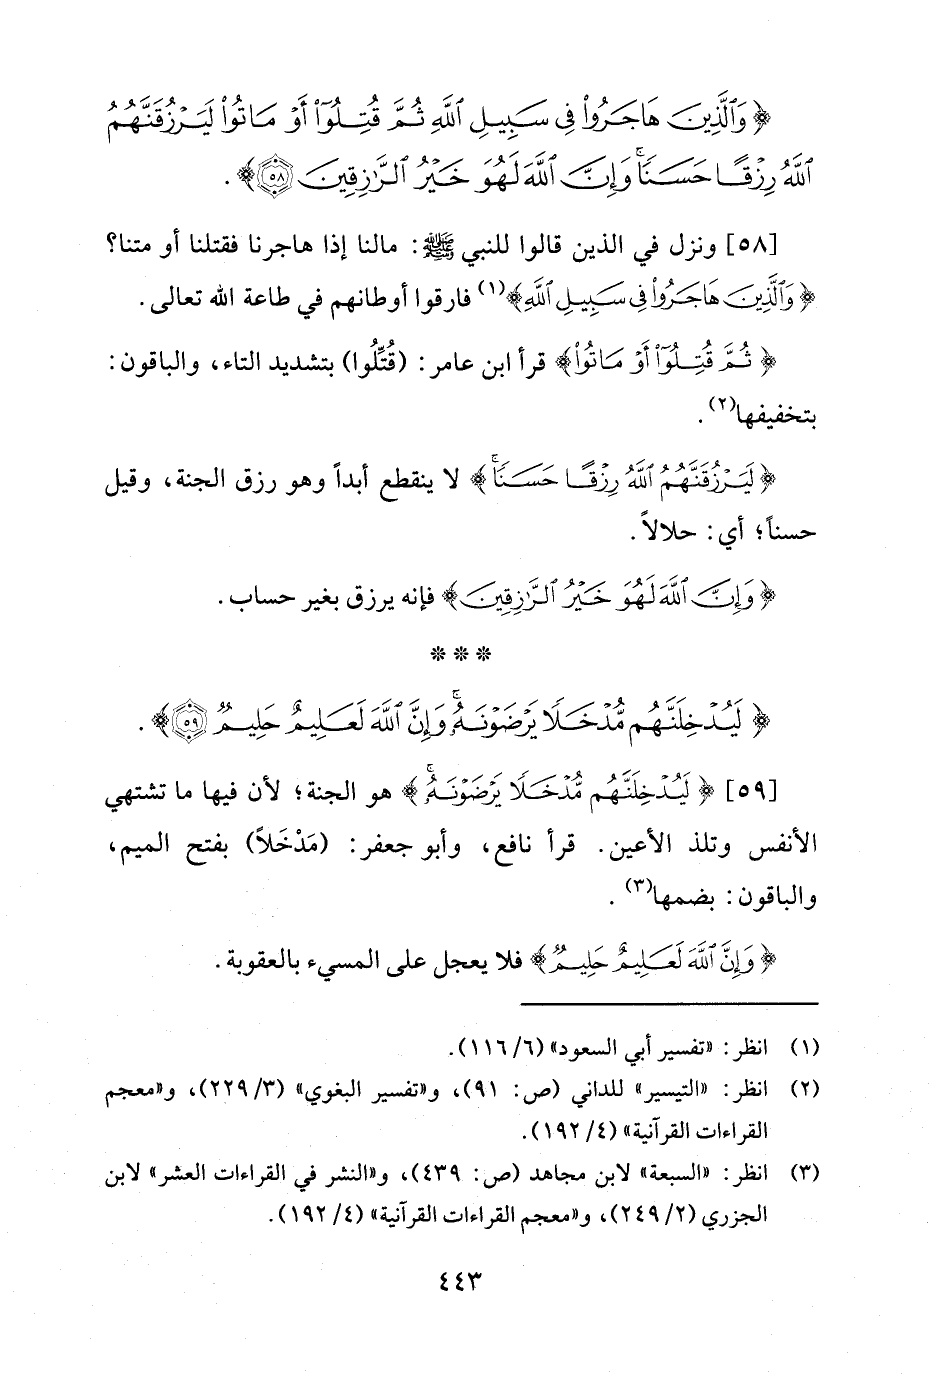 ﴿وَٱلَّذِينَ هَاجَرُوا۟ فِى سَبِيلِ ٱللَّهِ ثُمَّ قُتِلُوٓا۟ أَوْ مَاتُوا۟ لَيَرْزُقَنَّهُمُ
ٱللَّهُ رِزْقًا حَسَنًاۚ وَإِنَّ ٱللَّهَ لَهُوَ خَيْرُ ٱلرَّٰزِقِينَ ٥٨﴾.
[٥٨] ونزل في الذين قالوا للنبي ﷺ: مالنا إذا هاجرنا فقتلنا أو متنا؟
﴿وَٱلَّذِينَ هَاجَرُوا۟ فِى سَبِيلِ ٱللَّهِ﴾(١) فارقوا أوطانهم في طاعة الله تعالى.
﴿ثُمَّ قُتِلُوٓا۟ أَوْ مَاتُوا۟﴾ قرأ ابن عامر: (قُتِّلُوا) بتشديد التاء، والباقون:
بتخفيفها(٢).
﴿لَيَرْزُقَنَّهُمُ ٱللَّهُ رِزْقًا حَسَنًاۚ﴾ لا ينقطع أبداً وهو رزق الجنة، وقيل
حسناً؛ أي: حلالاً.
﴿وَإِنَّ ٱللَّهَ لَهُوَ خَيْرُ ٱلرَّٰزِقِينَ﴾ فإنه يرزق بغير حساب.
* * *
﴿لَيُدْخِلَنَّهُم مُّدْخَلًا يَرْضَوْنَهُۥۚ وَإِنَّ ٱللَّهَ لَعَلِيمٌ حَلِيمٌ ٥٩﴾.
[٥٩] ﴿لَيُدْخِلَنَّهُم مُّدْخَلًا يَرْضَوْنَهُۥۚ﴾ هو الجنة؛ لأن فيها ما تشتهي
الأنفس وتلذ الأعين. قرأ نافع، وأبو جعفر: (مَدْخَلاً) بفتح الميم،
والباقون: بضمها(٣).
﴿وَإِنَّ ٱللَّهَ لَعَلِيمٌ حَلِيمٌ﴾ فلا يعجل على المسيء بالعقوبة.
(١) انظر: «تفسير أبي السعود» (٦/ ١١٦).
(٢) انظر: «التيسير» للداني (ص: ٩١)، و«تفسير البغوي» (٣/ ٢٢٩)، و«معجم
القراءات القرآنية» (٤/ ١٩٢).
(٣) انظر: «السبعة» لابن مجاهد (ص: ٤٣٩)، و«النشر في القراءات العشر» لابن
الجزري (٢/ ٢٤٩)، و«معجم القراءات القرآنية» (٤/ ١٩٢).
٤٤٣